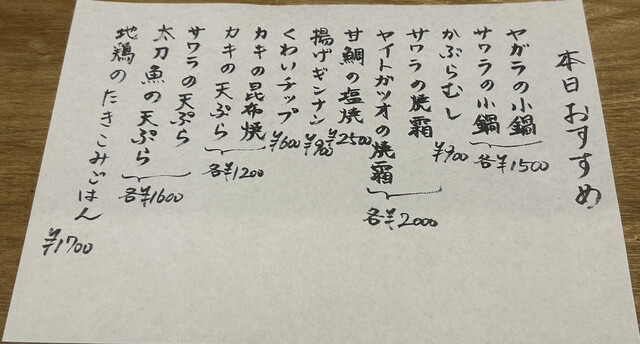 本日おすすめ
ヤガラの小鍋
サワラの小鍋
各¥1500
かぶらむし
¥900
サワラの焼霜
ヤイトガツオの焼霜
各¥2000
甘鯛の塩焼
¥2500
揚げギンナン
¥900
くわいチップ
¥600
カキの昆布焼
カキの天ぷら
各¥1200
サワラの天ぷら
太刀魚の天ぷら
各¥1600
地鶏のたきこみごはん
¥1700